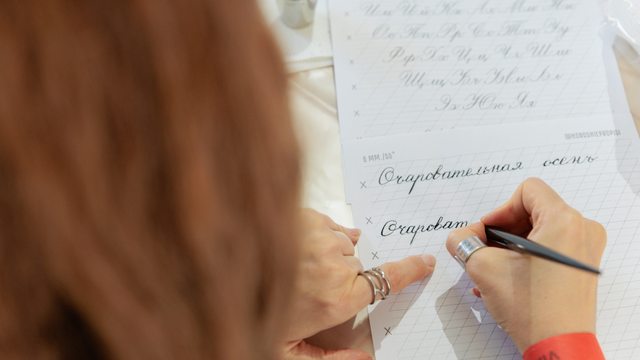 Ии Йй Кк Лл Мм Нн
Оо Пп Рр Сс Тт Уу
Фф Хх Цц Чч Шш
Щщ
Ээ Юю Яя
6 ММ./55°
Очаровательная осень
Очароват